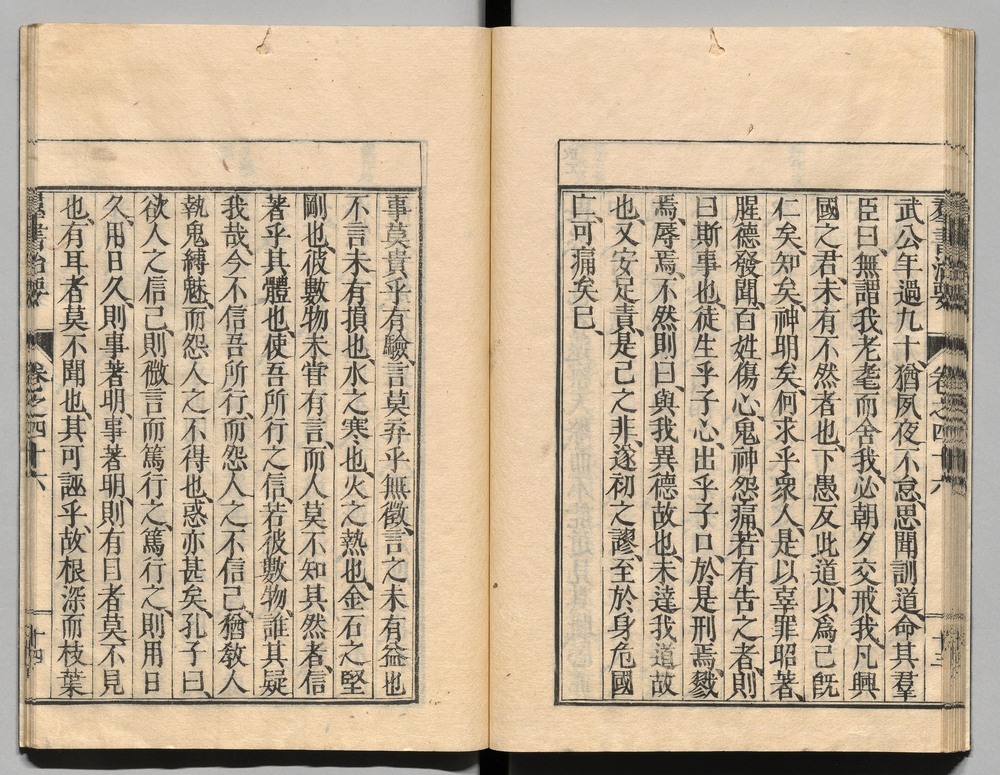 羣書治要 卷之四十六 十三
武公年過九十、猶夙夜不怠、思聞訓道、命其羣
臣曰、無謂我老耄而舍我、必朝夕交戒我、凡興
國之君、未有不然者也、下愚反此道、以爲己既
仁矣、知矣、神明矣、何求乎衆人、是以辜罪昭著、
腥德發聞、百姓傷心、鬼神怨痛、若有告之者、則
曰斯事也、徒生乎子心、出乎子口、於是刑焉、戮
焉、辱焉、不然則曰、與我異德故也、未達我道故
也、又安足責、是己之非、遂初之謬、至於身危國
亡、可痛矣已、
事莫貴乎有驗、言莫弃乎無徵、言之未有益也、
不言未有損也、水之寒也、火之熱也、金石之堅
剛也、彼數物未甞有言、而人莫不知其然者、信
著乎其體也、使吾所行之信、若彼數物、誰其疑
我哉、今不信吾所行、而怨人之不信己、猶敎人
執鬼縛魅、而怨人之不得也、惑亦甚矣、孔子曰、
欲人之信己、則微言而篤行之、篤行之、則用日
久、用日久、則事著明、事著明、則有目者莫不見
也、有耳者莫不聞也、其可誣乎、故根深而枝葉
羣書治要 卷之四十六 十四